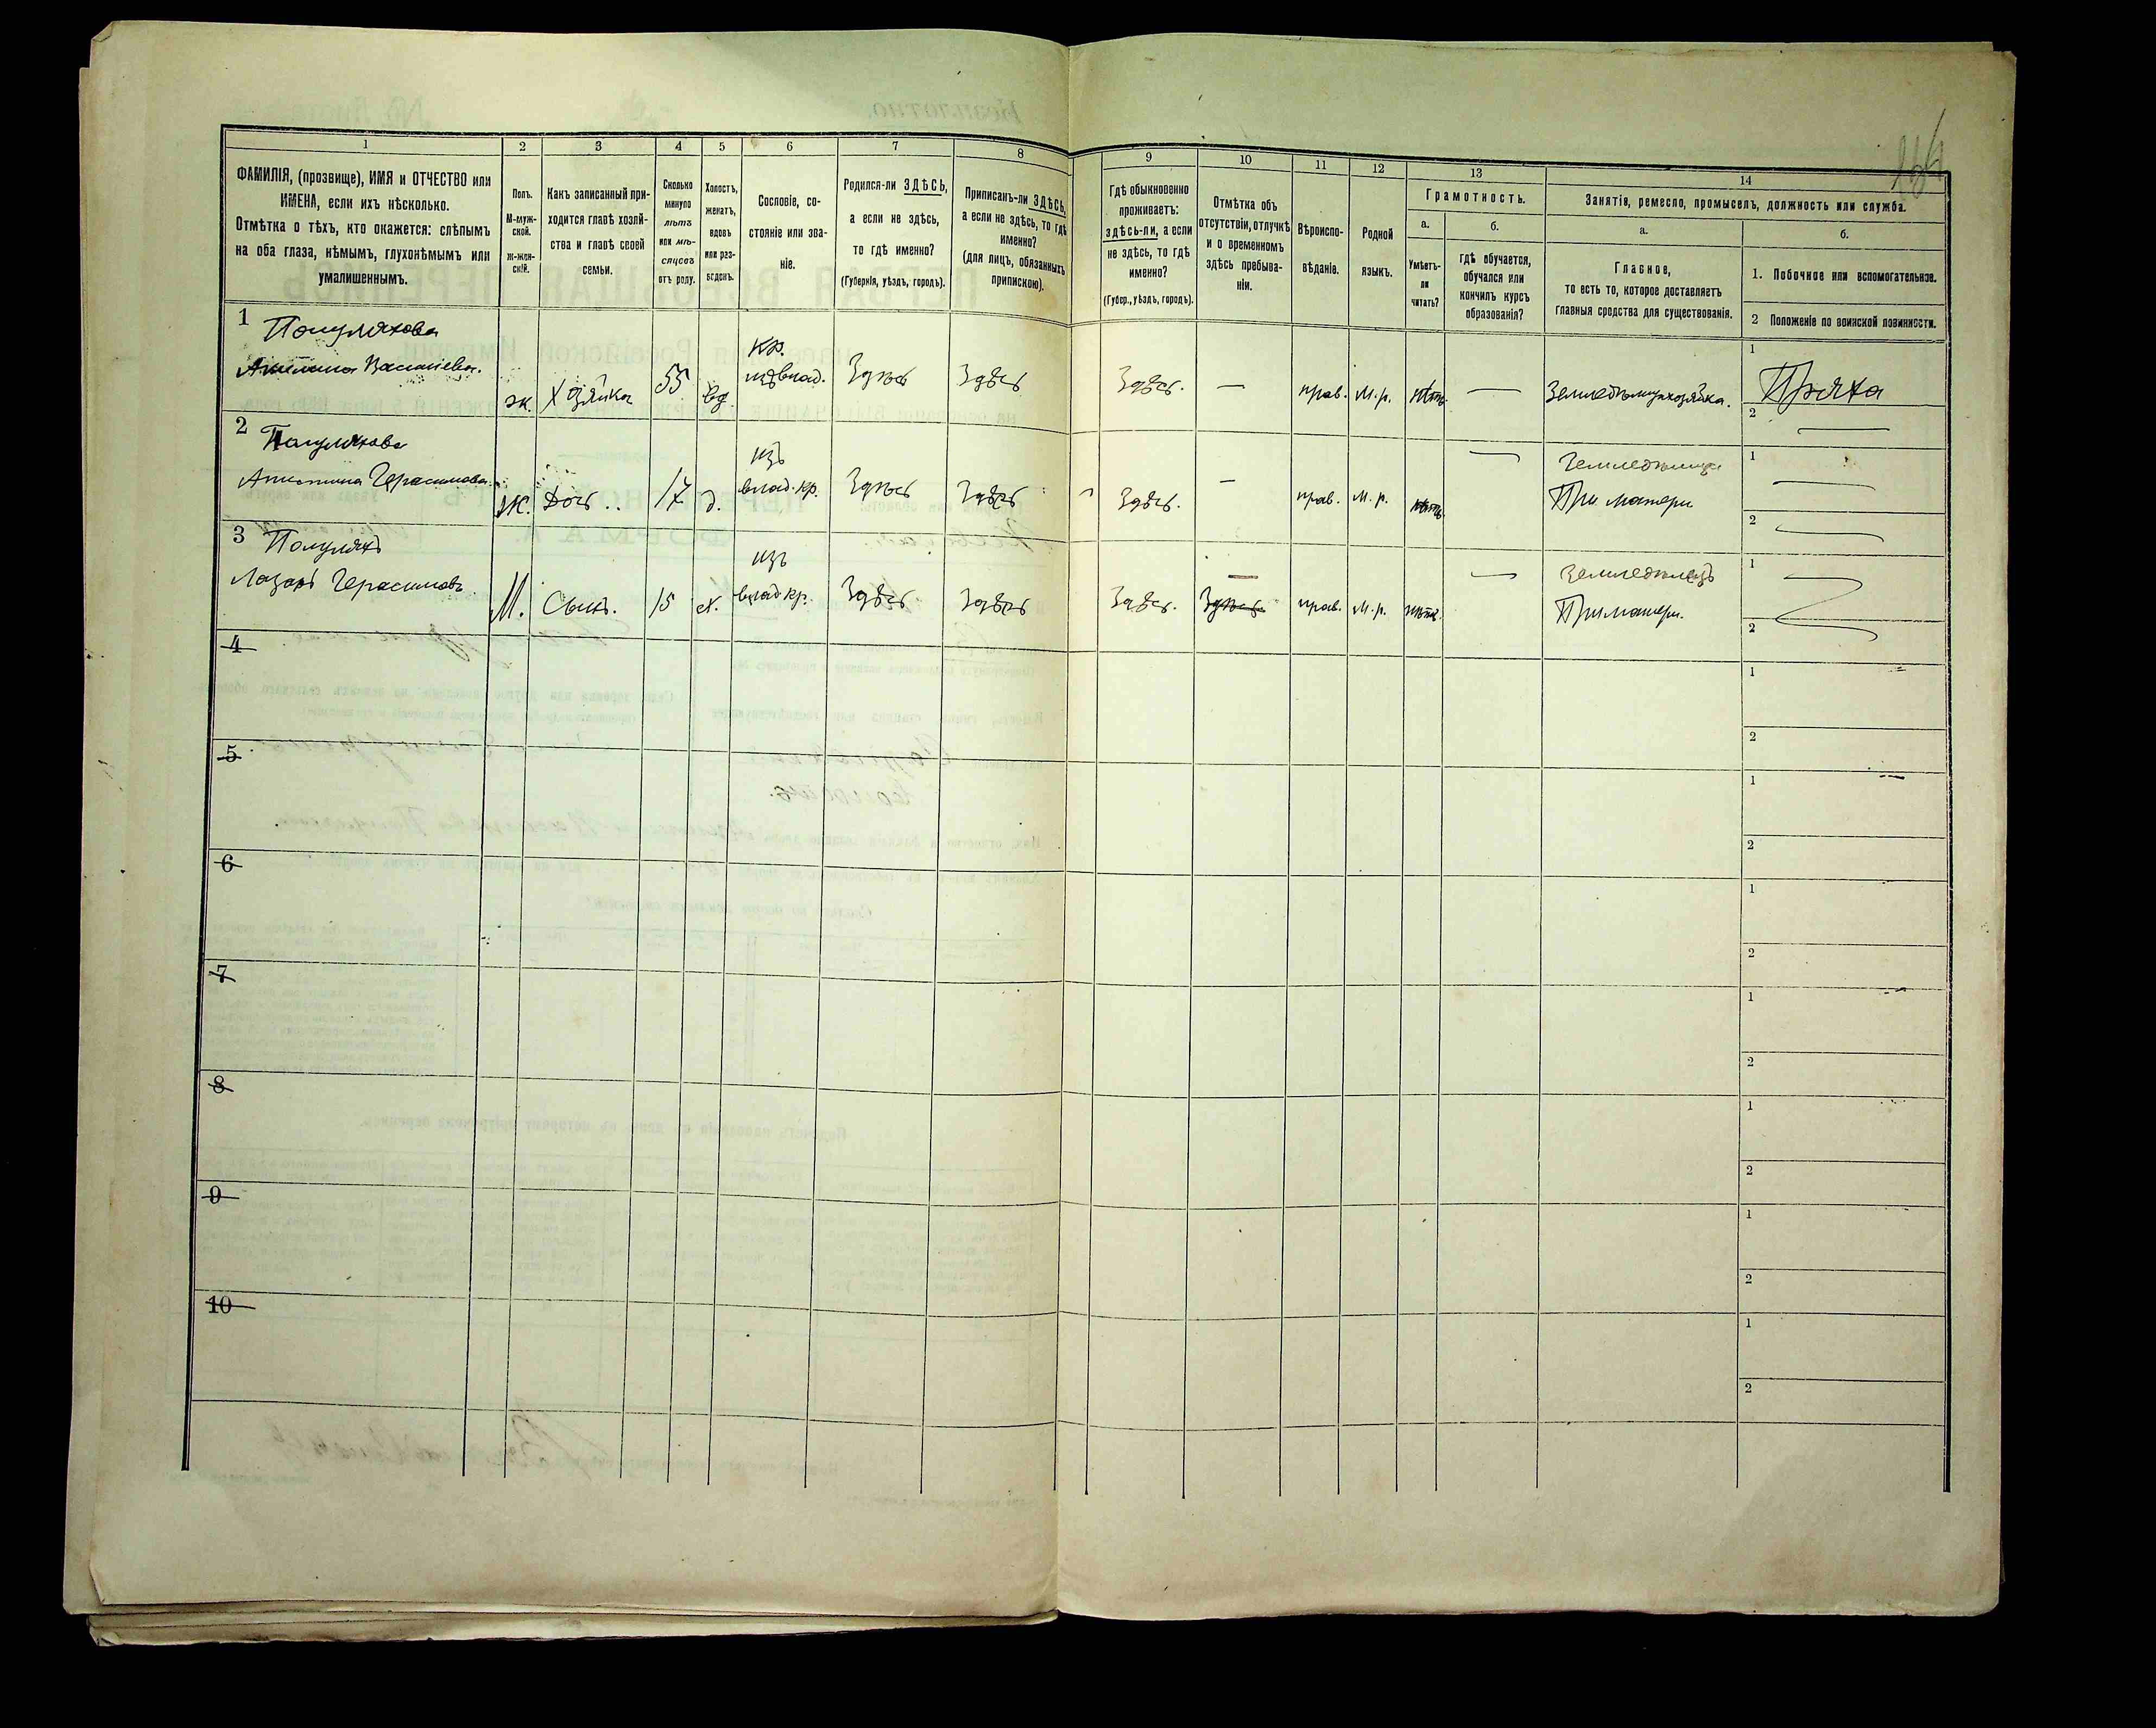 154
1 2 3 4 5 6 7 8 9 10 11 12 13 14
ФАМИЛІЯ, (прозвище), ИМЯ и ОТЧЕСТВО или
ИМЕНА, если ихъ нѣсколько.
Отмѣтка о тѣхъ, кто окажется: слѣпымъ
на оба глаза, нѣмымъ, глухонѣмымъ или
умалишеннымъ.
Полъ.
М-муж-
ской.
Ж-жен-
скій.
Какъ записанный при-
ходится главѣ хозяй-
ства и главѣ своей
семьи.
Сколько
минуло
лѣтъ
или мѣ-
сяцевъ
отъ роду.
Холостъ,
женатъ,
вдовъ
или раз-
веденъ.
Сословіе, со-
стояніе или зва-
ніе.
Родился-ли ЗДѢСЬ,
а если не здѣсь,
то гдѣ именно?
(Губернія, уѣздъ, городъ).
Приписанъ-ли ЗДѢСЬ,
а если не здѣсь, то гдѣ
именно?
(для лицъ, обязанныхъ
припискою).
Гдѣ обыкновенно
проживаетъ:
здѣсь-ли, а если
не здѣсь, то гдѣ
именно?
(Губер., уѣздъ, городъ).
Отмѣтка объ
отсутствіи, отлучкѣ
и о временномъ
здѣсь пребыва-
ніи.
Вѣроиспо-
вѣданіе.
Родной
языкъ.
Грамотность.
а.
Умѣетъ-
ли
читать?
б.
гдѣ обучается,
обучался или
кончилъ курсъ
образованія?
Занятія, ремесло, промыселъ, должность или служба.
а.
Главное,
то есть то, которое доставляетъ
главныя средства для существованія.
б.
1. Побочное или вспомогательное.
2 Положеніе по воинской повинности.
1 Полуляхова
Василіева. ж. Хзяйка 55 вд кр. изъ влад. Здѣсь Здѣсь Здѣсь. — прав. м.р. нѣтъ — хозяйка. 1 Пряха
2 —
2 Полуляхова
Герасимова. ж. Дочь.. 17 д. изъ влад. кр. Здѣсь Здѣсь Здѣсь. — прав. м.р. нѣтъ — При матери 1 —
2 —
3 Полуляхъ
Лазарь Герасимовъ М. Сынъ. 15 х. изъ влад кр. Здѣсь Здѣсь Здѣсь. — Здѣсь прав. м.р. нѣтъ. — Земледѣлецъ При матери. 1
2
4 1
2
5 1
2
6 1
2
7 1
2
8 1
2
9 1
2
10 1
2